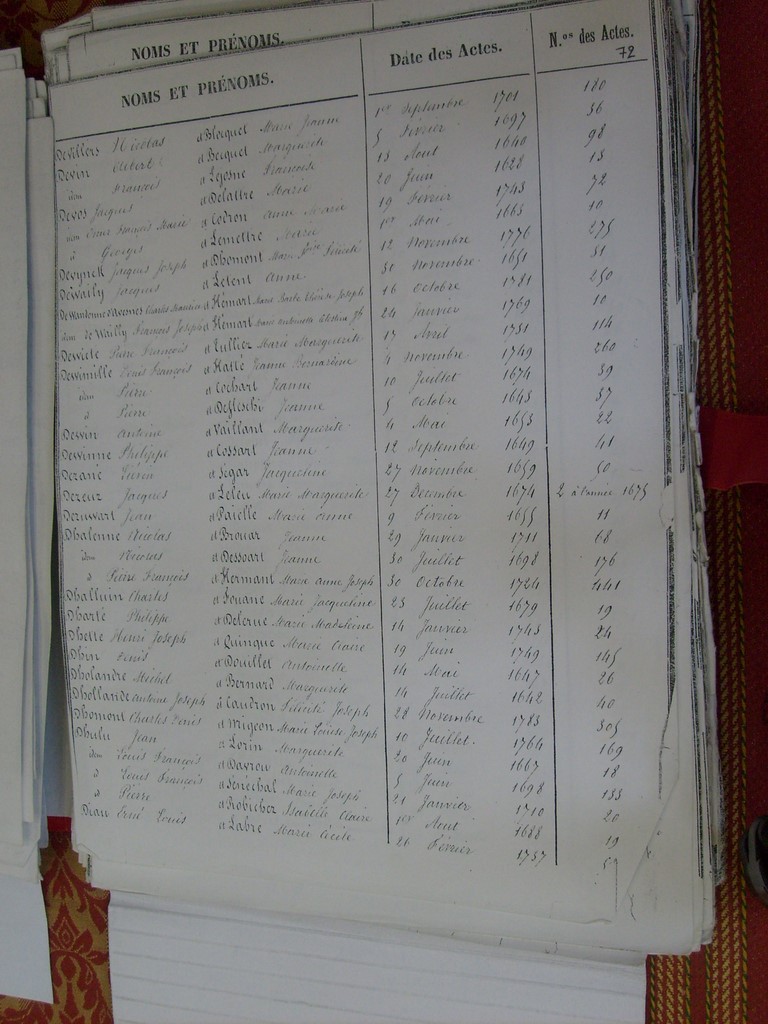 NOMS ET PRÉNOMS.
NOMS ET PRÉNOMS. Date des Actes. N.os des Actes.
72
Devillers Nicolas a Blocquet Marie Jeanne 1er Septembre 1701 180
Devin Aubert a Becquet Marguerite 5 Février 1697 36
idem François a Lejosne Françoise 13 Aout 1640 98
Devos Jacques a Delattre Marie 20 Juin 1628 13
idem François Marie a Codron Anne Marie 19 Février 1743 72
a Georges a Lemettre Marie 1er Mai 1663 10
Devynck Jacques Joseph a Dhomont Marie Félicité 12 Novembre 1776 275
Dewailly Jacques a Letent Anne 30 Novembre 1651 51
Dewantonne d'Avesnes Charles Maurice a Hémart Joseph 16 Octobre 1781 250
idem de Wailly François Joseph a Hémart 24 Janvier 1769 10
Dewiele Pierre François a Tullier Marie Marguerite 17 Avril 1731 114
Dewimille Louis François a Hatté Jeanne Bernardine 4 Novembre 1749 260
idem Pierre a Cochart Jeanne 10 Juillet 1674 39
a Pierre a Defleschi Jeanne 5 Octobre 1643 37
Dewin Antoine a Vaillant Marguerite 4 Mai 1653 22
Dewinne Philippe a Cossart Jeanne 12 Septembre 1649 41
Dezané a Segar Jacqueline 27 Novembre 1659 50
Dezeur Jacques a Leleu Marie Marguerite 27 Decembre 1674 2 à l'année 1675
Dezuwart Jean a Paielle Marie Anne 9 Février 1655 11
Dhalenne Nicolas a Brouar Jeanne 29 Janvier 1711 68
idem Nicolas a Dessoart Jeanne 30 Juillet 1698 176
a Pierre François a Hermant Marie Anne Joseph 30 Octobre 1724 441
Dhalluin Charles a Fouane Marie Jacqueline 23 Juillet 1679 19
Dharté Philippe a Delerue Marie Madeleine 14 Janvier 1743 24
Dhette Henri Joseph a Quinque Marie Claire 19 Juin 1749 145
Dhin Denis a Douillet Antoinette 14 Mai 1647 26
Dholandre Michel a Bernard Marguerite 14 Juillet 1642 40
Dhollande Antoine Joseph a Caudron Félicité Joseph 28 Novembre 1783 305
Dhomont Charles Denis a Migeon Marie Louise Joseph 10 Juillet 1764 169
Dhulu Jean a Lorin Marguerite 20 Juin 1667 18
idem Louis François a Davrou Antoinette 5 Juin 1698 133
a Louis François a Sénéchal Marie Joseph 21 Janvier 1710 20
a Pierre a Robichez Isabelle Claire 1er Aout 1688 19
Diau René Louis a Labre Marie Cécile 26 Février 1737